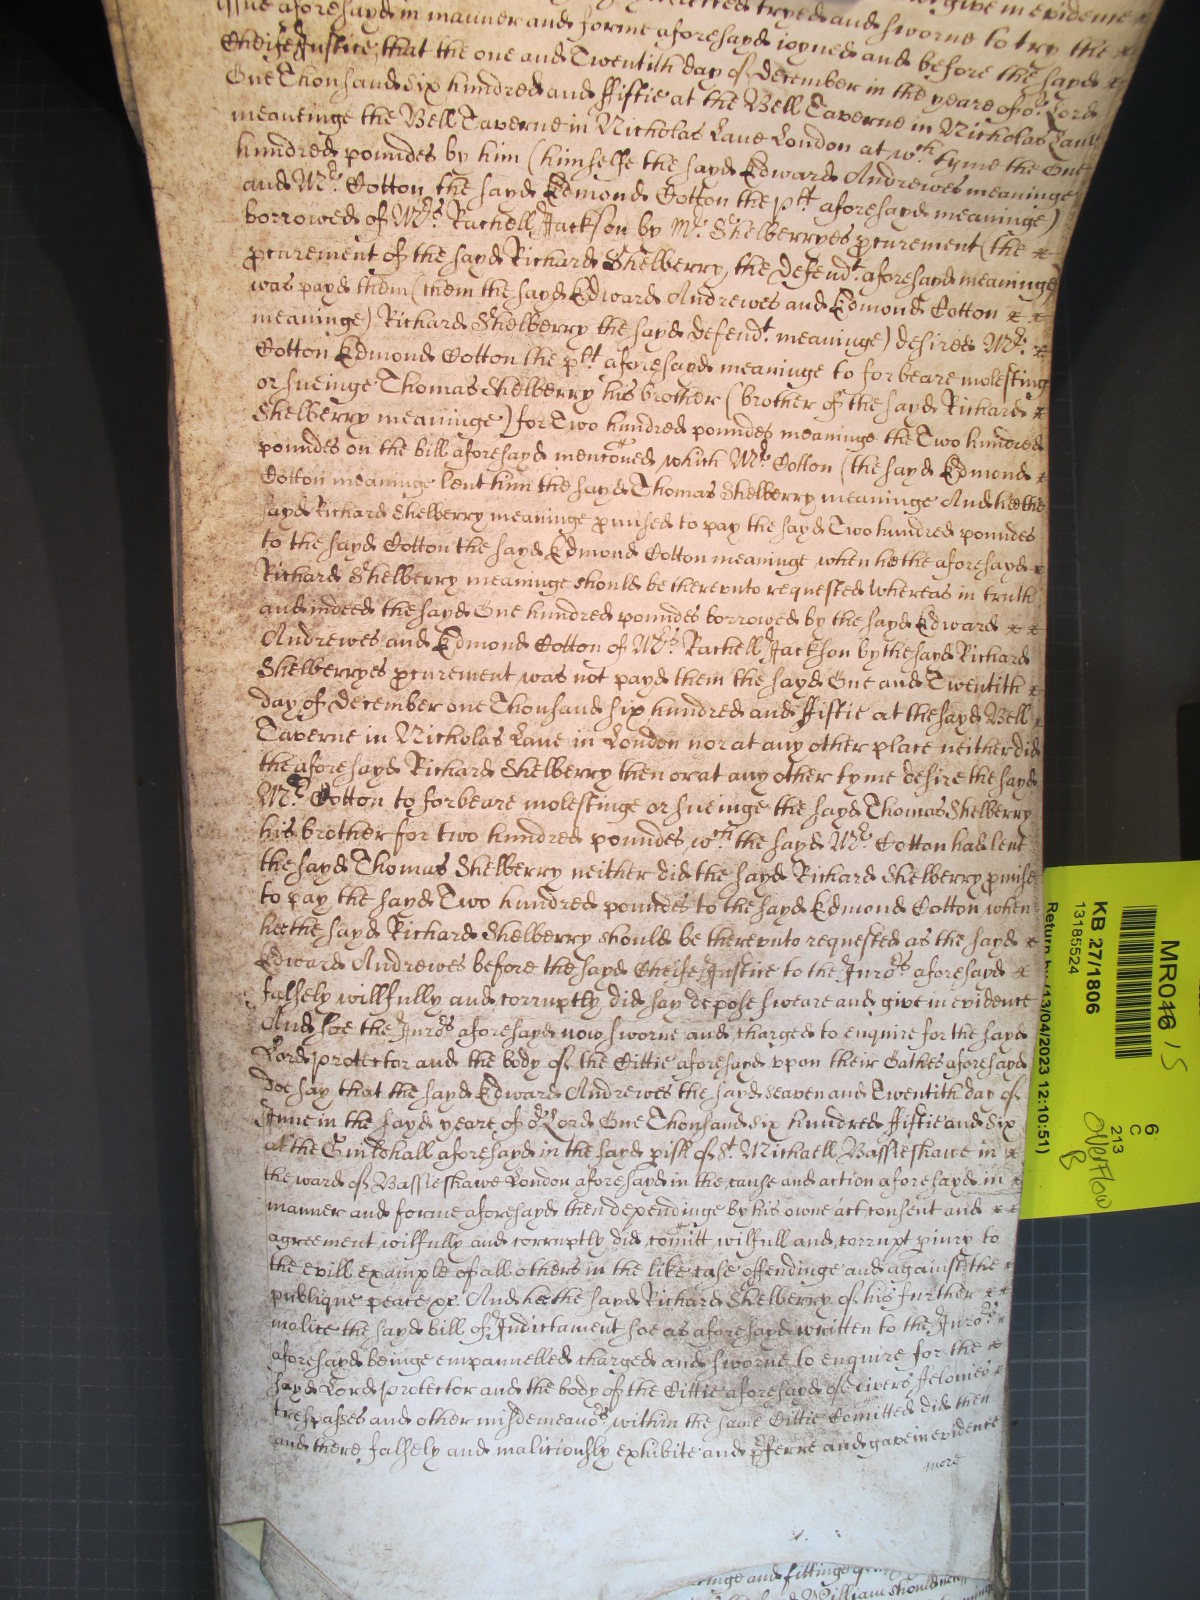 tryed and sworne to give in evidence
issue aforesayd in manner and forme aforesayd ioyned and before the sayd
Cheife Justice, that the one and Twentith day of December in the yeare of or Lord
One Thousand six hundred and ffiftie at the Bell Taverne in Nicholas Lane
meaneinge the Bell Taverne in Nicholas Lane London at wch tyme the One
hundred poundes by him (himselfe the sayd Edward Andrewes meaninge
and Mr Cotton the sayd Edmond Cotton the plt aforesayd meaninge)
borrowed of Mrs Rachell Jackson by Mr Shelberryes pcurement (the
pcurement of the sayd Richard Shelberry, the defendt aforesayd meaninge)
was payd them (them the sayd Edward Andrewes and Edmond Cotton
meaninge) Richard Shelberry the sayd defendt meaninge) desired Mr
Cotton Edmond Cotton the plt aforesayd meaninge to forbeare molesting
or sueinge Thomas Shelberry his brother (brother of the sayd Richard
Shelberry meaninge) for Two hundred poundes meaninge the Two hundred
poundes on the bill aforesayd mentoned which Mr Cotton (the sayd Edmond
Cotton meaninge lent him the sayd Thomas Shelberry meaninge And hee the
sayd Richard Shelberry meaninge pmised to pay the sayd Two hundred poundes
to the sayd Cotton the sayd Edmond Cotton meaninge when he the aforesayd
Richard Shelberry meaninge should be therevnto requested whereas in truth
and indeed the sayd One hundred poundes borrowed by the sayd Edward
Andrewes and Edmond Cotton of Mrs Rachell Jackson by the sayd Richard
Shelberryes pcurement was not payd them the sayd One and Twentith
day of December one Thousand six hundred and ffiftie at the sayd Bell
Taverne in Nicholas Lane in London nor at any other place neither did
the aforesayd Richard Shelberry then or at any other tyme desire the sayd
Mr Cotton to forbeare molestinge or sueinge the sayd Thomas Shelberry
his brother for two hundred poundes wch the sayd Mr Cotton had lent
the sayd Thomas Shelberry neither did the sayd Richard Shelberry pmise
to pay the sayd Two hundred poundes to the sayd Edmond Cotton when
hee the sayd Richard Shelberry should be therevnto requested as the sayd
Edward Andrewes before the sayd Cheife Justice to the Jurors aforesayd
falsely willfully and corruptly did say depose sweare and give in evidence
And soe the Jurors aforesayd now sworne and charged to enquire for the sayd
Lord protector and the body of the Cittie aforesayd vpon their Oathes aforesayd
doe say that the sayd Edward Andrewes the sayd seaven and Twentith day of
June in the sayd yeare of or Lord One Thousand six hundred ffiftie and six
at the Guildhall aforesayd in the sayd pish of St Michaell Bassieshawe in
the ward of Bassieshawe London aforesayd in the cause and action aforesayd in
manner and forme aforesayd then dependinge by his owne act consent and
agreement wilfully and corruptly did comitt wilfull and corrupt piury to
the evill example of all others in the like case offendinge and against the
publique peace &c. And hee the sayd Richard Shelberry of his further
malice the sayd bill of Indictament soe as aforesayd written to the Jurors
aforesayd beinge empannelled charged and sworne to enquire for the
sayd Lord protector and the body of the Cittie aforesayd of divers felonies
trespasses and other misdemeanors within the same Cittie Comitted did then
and there falsely and maliciously exhibite and pferre and gave in evidence
more
inge and fittinge
William should
MR046
15
KB 27/1806
13185524
6
C
213
Overflow
B
Return by (13/04/2023 12:10:51)